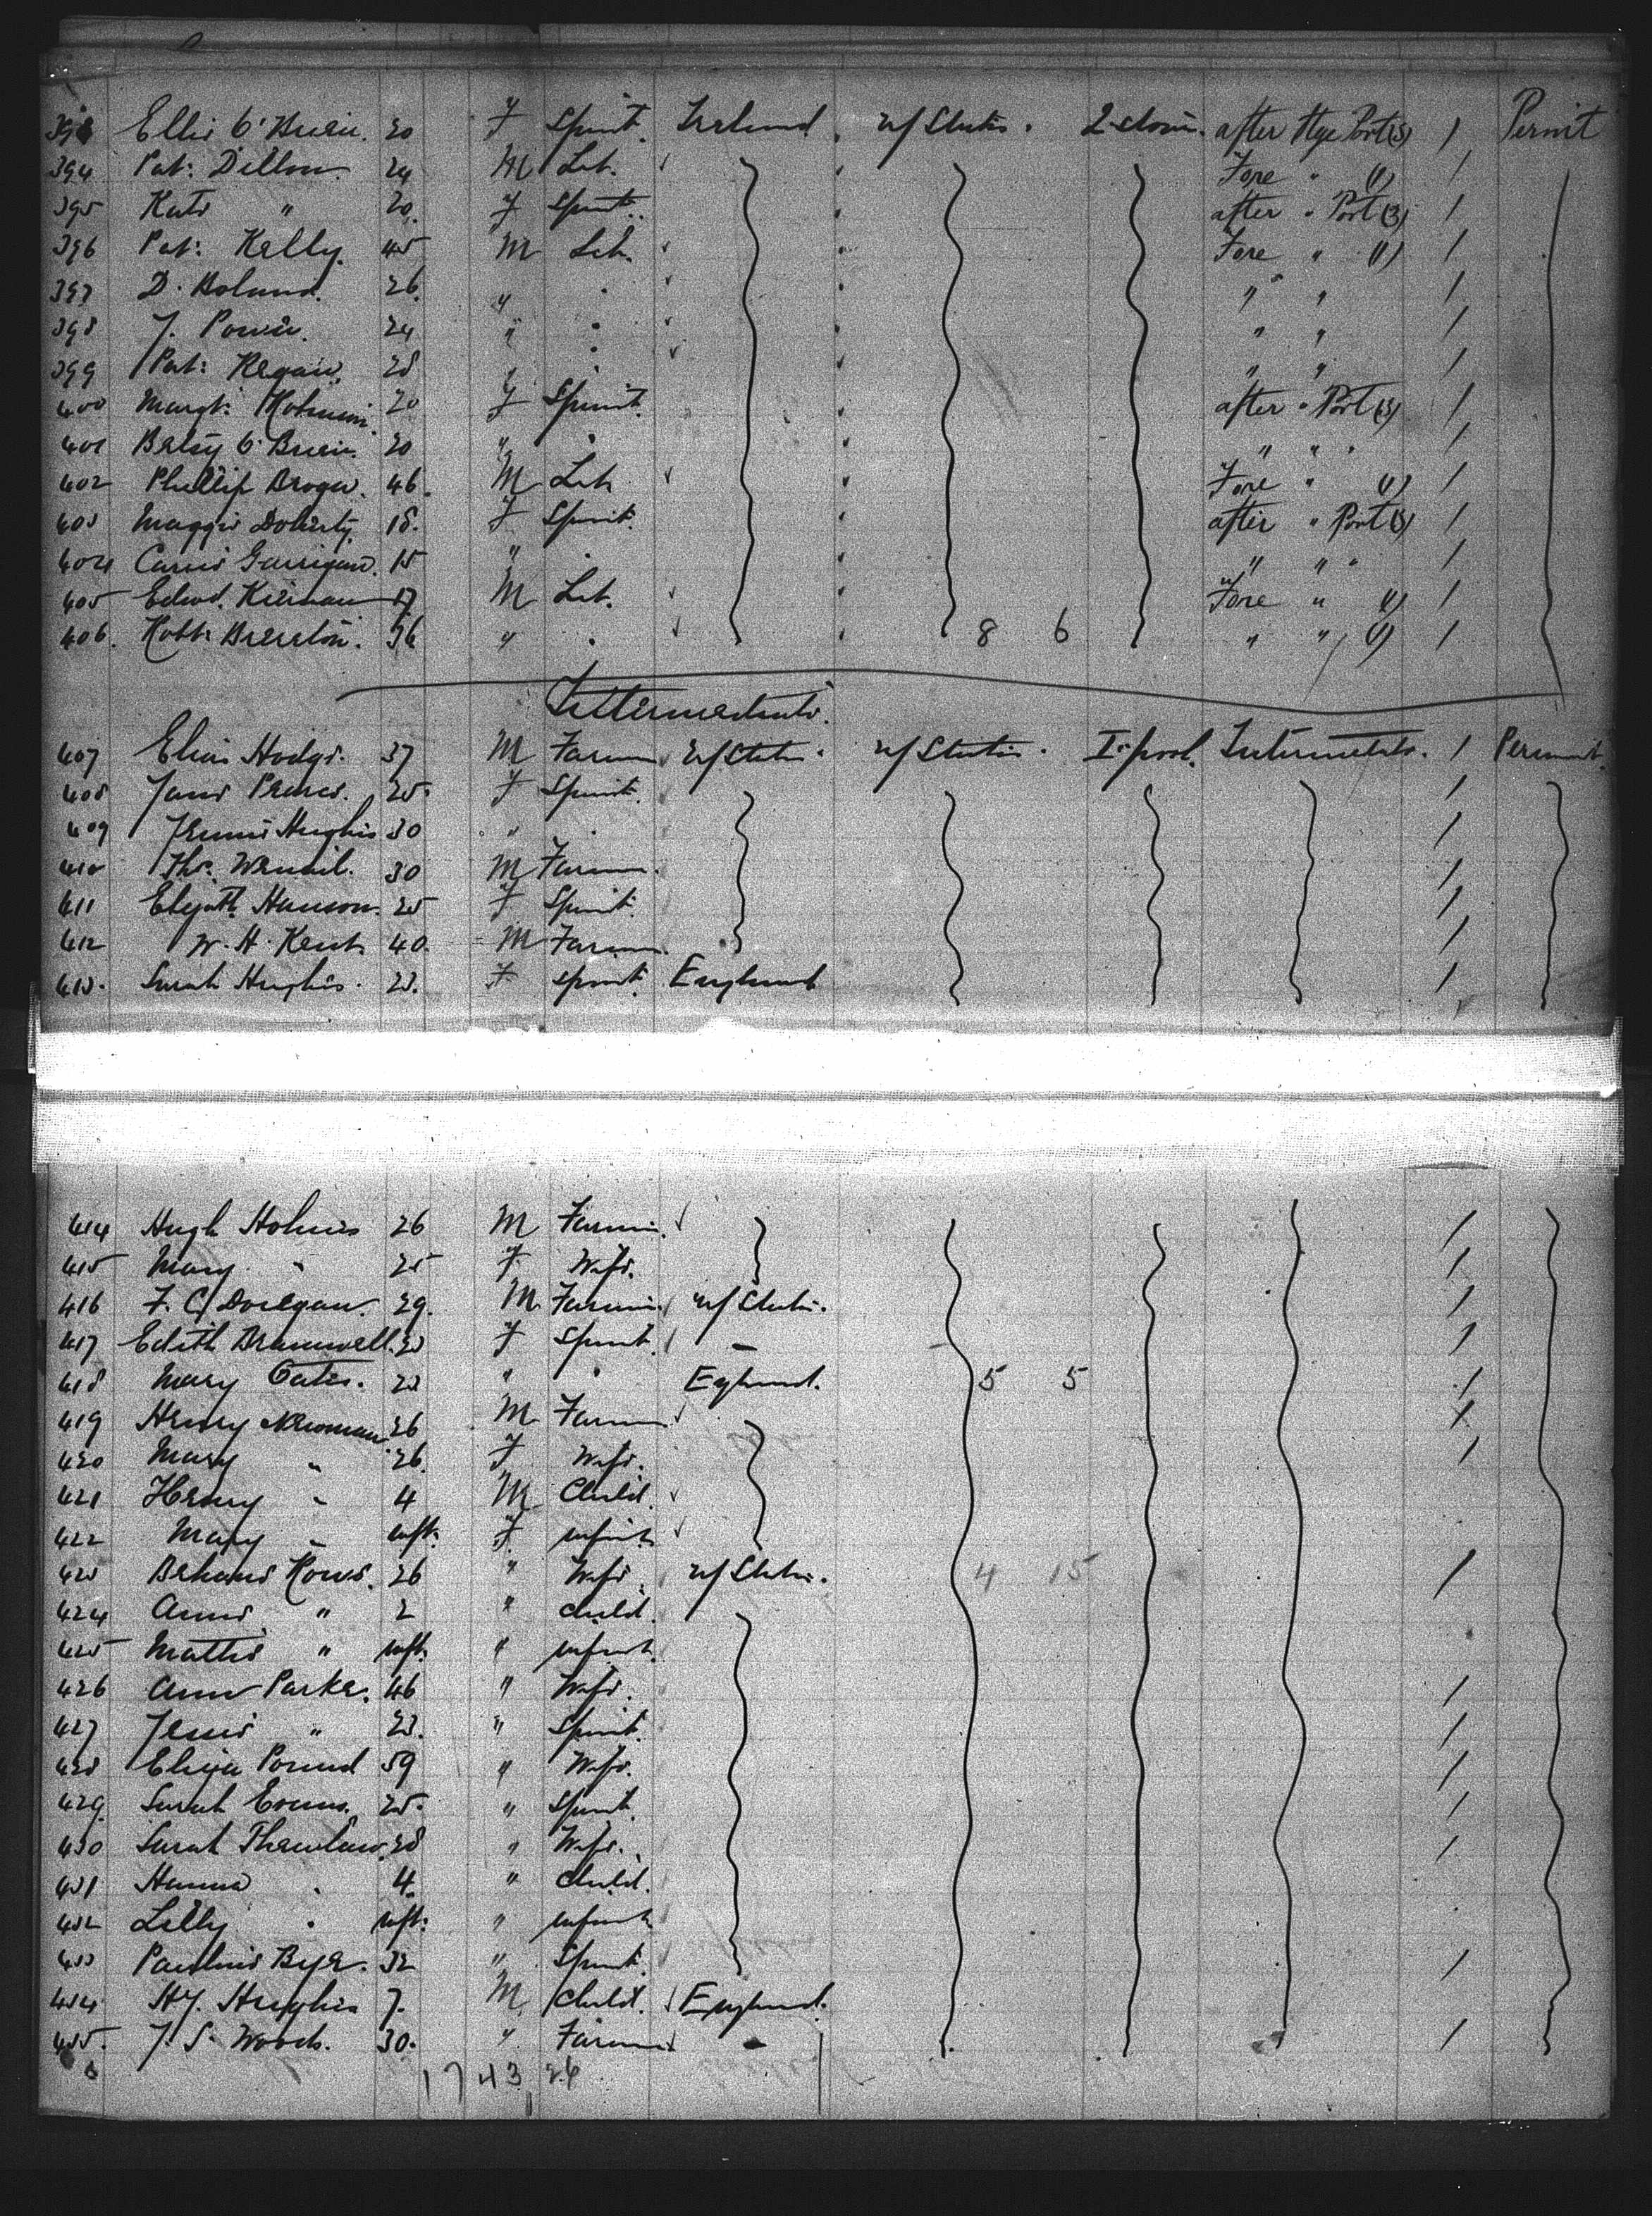 393 Ellis O'Brien. 20 F Spinst. Ireland u/States. 2-stown. after Stge Port (3) / Permit
394 Pat: Dillon. 24 M Lab. Fore " (1) /
395 Kate " 20. F Spinst. after " Port (3) /
396 Pat: Kelly. 45 M Lab. Fore " (1) /
397 D. Boland. 26. " " " " /
398 J. Power. 24 " " " " /
399 Pat: Regan. 28 " " " " /
400 Margt: 20 F Spinst. after " Port (3) /
401 Betsy O'Brien. 20 " " " " /
402 Phillip 46. M Lab Fore " (1) /
403 Maggie Doherty. 18. F Spinst. after " Port (3) /
404 Garrigan. 15 " " " " /
405 Edwd. Kiernan 17 M Lab. Fore " (1) /
406. Robt. Brereton. 36 " " 8 6 " " (1) /
Intermediate.
407 Elias Hodge. 37 M Farmer u/States. u/States. L'pool. Intermediate. / Permit.
408 Jane 25. F Spinst. /
409 Jennie Hughes 30 " " /
410 Ths. 30 M Farmer. /
411 Elizath. Hanson. 25 F Spinst. /
412 W. H. Kent. 40. M Farmer. /
413. Sarah Hughes. 23. F Spinst. England /
414 Hugh Holmes 26 M Farmer. /
415 Mary " 25 F Wife. /
416 F. C. Donegan. 29. M Farmer. u/States. /
417 Edith Bramwell. 23 F Spinst. - /
418 Mary Oates. 23 " " England. 5 5 /
419 Henry Newman 26 M Farmer /
420 Mary " 26. F Wife. /
421 Henry " 4 M Child.
422 Mary " inft. F infant
423 Rowe. 26 " Wife. u/States. 4 15 /
424 Annie " 2 " child.
425 Mattie " inft. " infant.
426 Ann Parker. 46 " Wife. /
427 Jessie " 23. " Spinst. /
428 Eliza Pound 59 " Wife. /
429. Sarah Evans. 25. " Spinst. /
430 Sarah 28 " Wife. /
431 Hanna " 4. " Child.
432 Lilly " inft: " infant
433 Pauline Byer. 32 " Spinst. /
434. Hy. Hughes 7. M Child. England.
435. J. S. Woods. 30. " Farmer - /
17 43 26